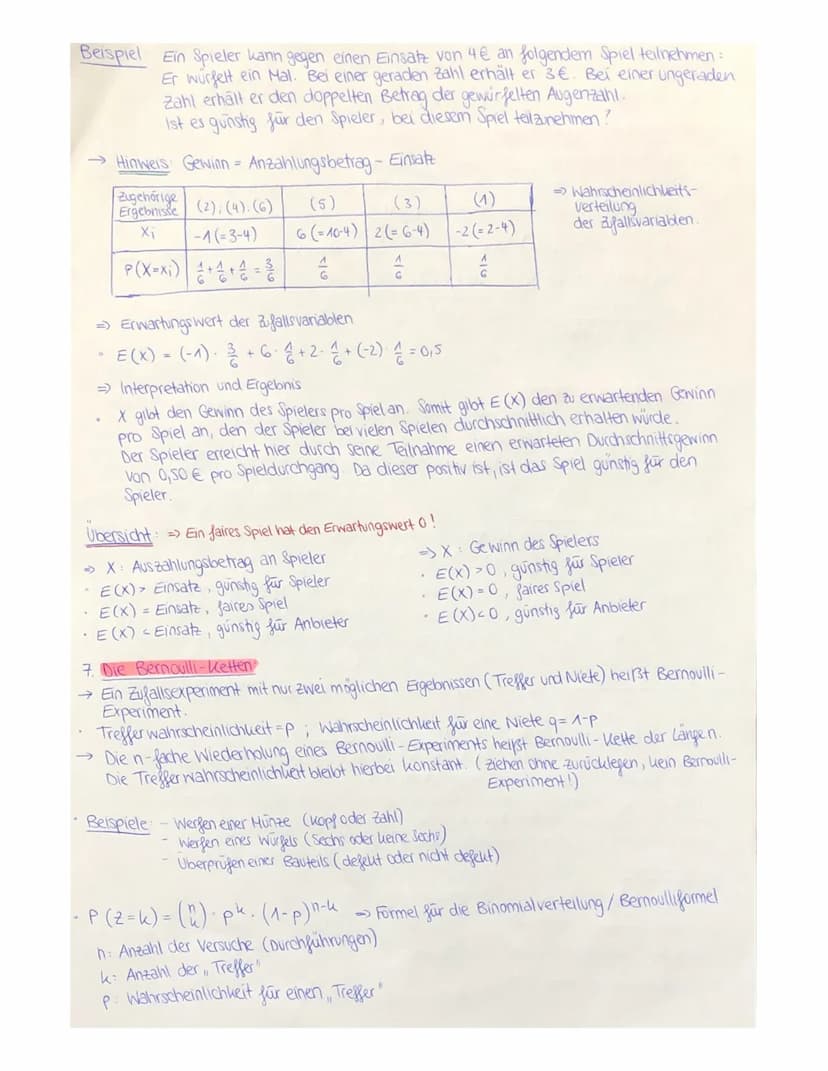 Beispiel Ein Spieler kann gegen einen Einsatz von 4€ an folgendem Spiel teilnehmen:
Er würfelt ein Mal. Bei einer geraden Zahl erhält er 3€. Bei einer ungeraden
Zahl erhält er den doppelten Betrag der gewürfelten Augenzahl.
Ist es günstig für den Spieler, bei diesem Spiel teilzunehmen?
→ Hinweis: Gewinn = Anzahlungsbetrag - Einsatz
Zugehörige Ergebnisse (2), (4), (6) (5) (3) (1)
Xi -1(=3-4) 6(=10-4) 2(=6-4) -2(=2-4)
P(X=xi) 1/6 + 1/6 + 1/6 = 3/6 1/6 1/6 1/6
⇒ Wahrscheinlichkeits-
verteilung
der Zufallsvariablen.
⇒ Erwartungswert der Zufallsvariablen
• E(X) = (-1) · 3/6 + 6 · 1/6 + 2 · 1/6 + (-2) · 1/6 = 0,5
⇒ Interpretation und Ergebnis
• X gibt den Gewinn des Spielers pro Spiel an. Somit gibt E(X) den zu erwartenden Gewinn
pro Spiel an, den der Spieler bei vielen Spielen durchschnittlich erhalten würde.
Der Spieler erreicht hier durch seine Teilnahme einen erwarteten Durchschnittsgewinn
von 0,50€ pro Spieldurchgang. Da dieser positiv ist, ist das Spiel günstig für den
Spieler.
Übersicht: ⇒ Ein faires Spiel hat den Erwartungswert 0!
⇒ X: Auszahlungsbetrag an Spieler
• E(X) > Einsatz, günstig für Spieler
• E(X) = Einsatz, faires Spiel
• E(X) < Einsatz, günstig für Anbieter
⇒ X: Gewinn des Spielers
• E(X) > 0, günstig für Spieler
• E(X) = 0, faires Spiel
• E(X) < 0, günstig für Anbieter
7. Die Bernoulli-Ketten
→ Ein Zufallsexperiment mit nur zwei möglichen Ergebnissen (Treffer und Niete) heißt Bernoulli-
Experiment.
• Trefferwahrscheinlichkeit = p ; Wahrscheinlichkeit für eine Niete q = 1-p
→ Die n-fache Wiederholung eines Bernoulli-Experiments heißt Bernoulli-Kette der Länge n.
Die Trefferwahrscheinlichkeit bleibt hierbei konstant. (ziehen ohne zurücklegen, kein Bernoulli-
Experiment!)
• Beispiele: - Werfen einer Münze (Kopf oder Zahl)
- Werfen eines Würfels (Sechs oder keine Sechs)
- Überprüfen eines Bauteils (defekt oder nicht defekt)
• P(Z=k) = (n k) · p^k · (1-p)^n-k ⇒ Formel für die Binomialverteilung / Bernoulliformel
n: Anzahl der Versuche (Durchführungen)
k: Anzahl der „Treffer"
p: Wahrscheinlichkeit für einen „Treffer"